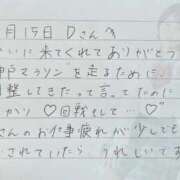 月15日 Dさんへ
いに来てくれてありがとう
神戸マラソン"を走るために、
調整してきた。って言ってたのに
かり♡回戦もして…♡"
さんのお仕事疲れが少しでも
されていたら うれしいです